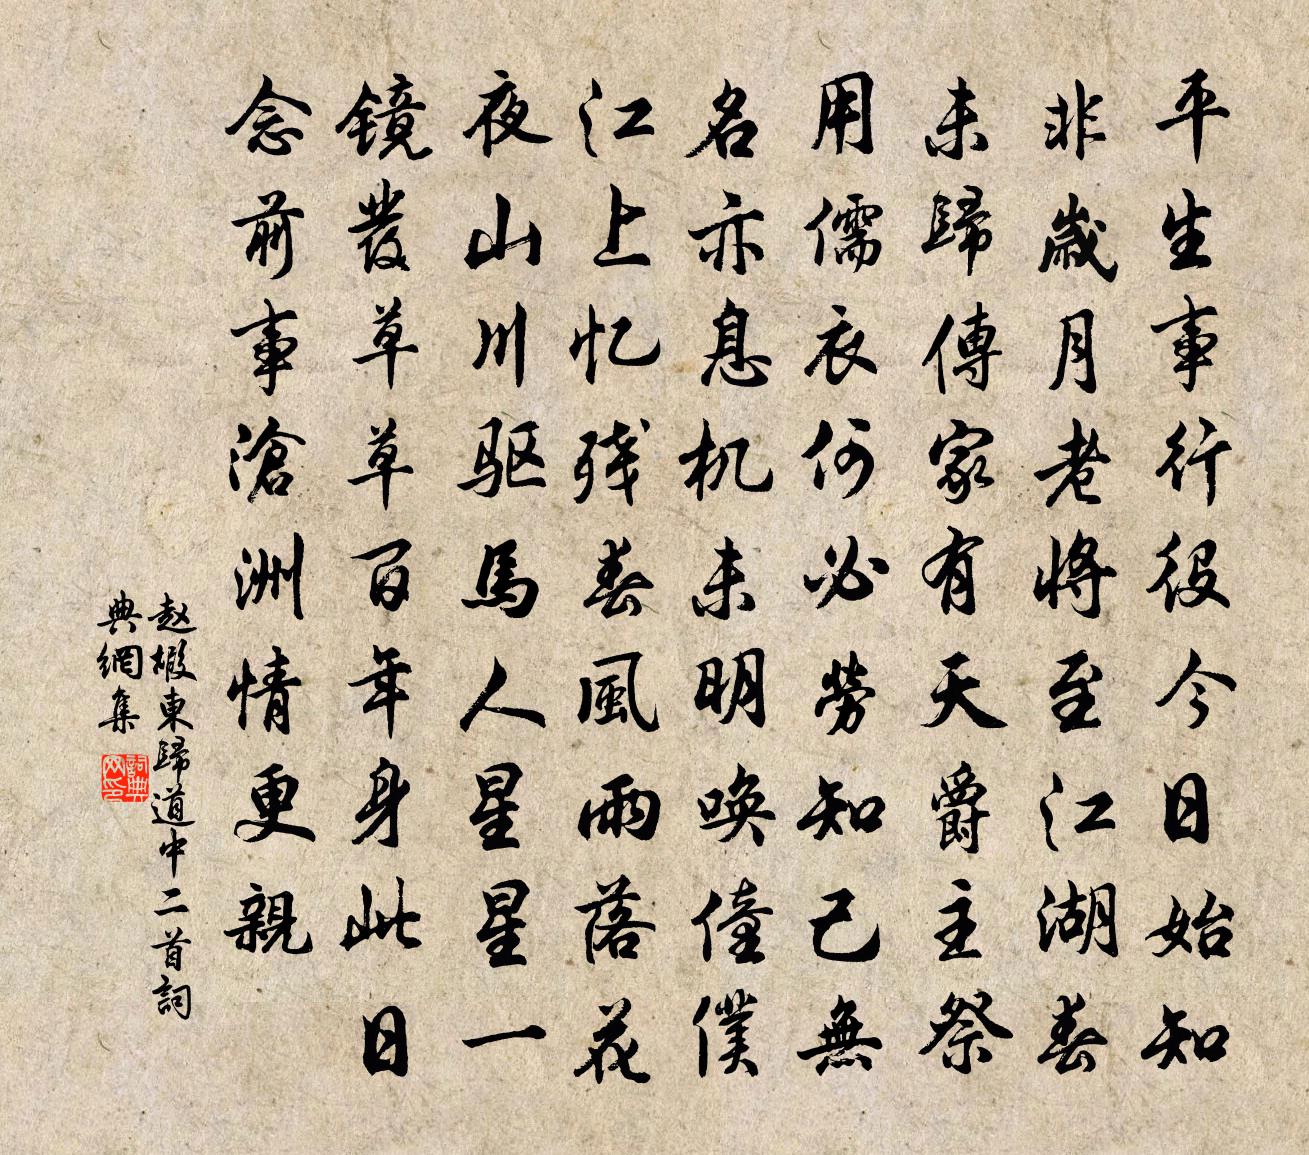 平生事行役今日始知
非歲月老將至江湖春
未歸傳家有天爵主祭
用儒衣何必勞知己無
名亦息机未明喚僮僕
江上忆残春風雨落花
夜山川驱馬人星星一
镜發草草百年身此日
念前事滄洲情更親
赵嘏東歸道中二首詞
典網集
詞典
网印